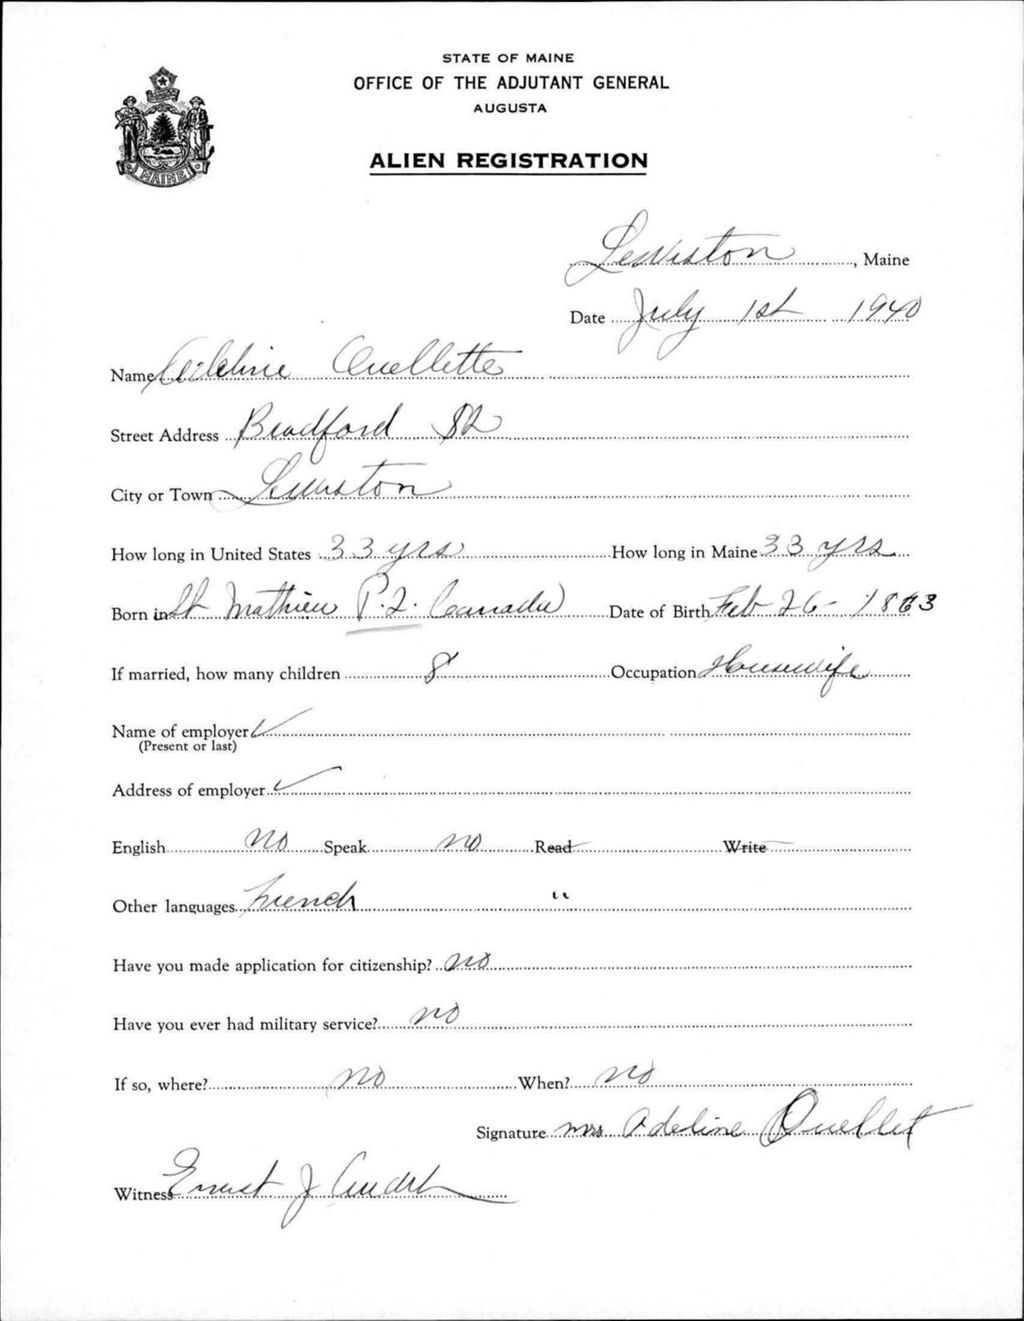 STATE OF MAINE
OFFICE OF THE ADJUTANT GENERAL
AUGUSTA
MAINE
ALIEN REGISTRATION
Lewiston, Maine
Date July 1st 1940
Name Adeline Ouellette
Street Address Bradford St
City or Town Lewiston
How long in United States 33 yrs How long in Maine 33 yrs
Born in St Mathieu P.Q. Canada Date of Birth Feb 26 - 1863
If married, how many children 8 Occupation Housewife
Name of employer ✓
(Present or last)
Address of employer ✓
English no Speak no Read Write
Other languages French "
Have you made application for citizenship? no
Have you ever had military service? no
If so, where? no When? no
Signature mrs Adeline Ouellet
Witness Ernest J